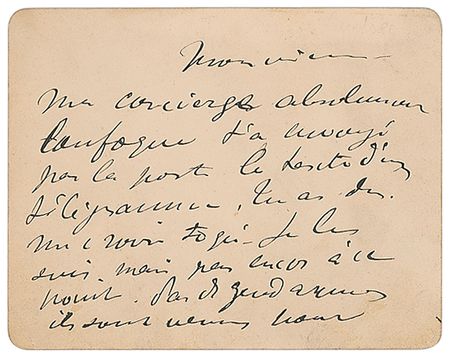 Mon vieux
Ma concierge absolument
loufoque t'a envoyé
par la poste le texte d'un
télégramme, tu as dû
me croire toqué. Je le
suis, mais pas encor à ce
point. Pas de gendarmes
ils sont venus pour